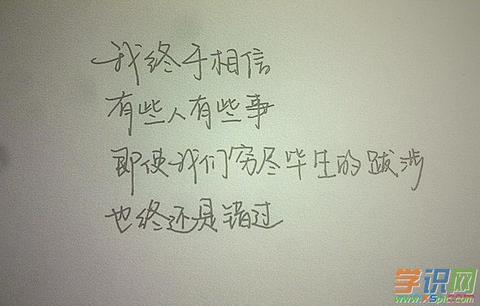 我终于相信
有些人有些事
即使我们穷尽毕生的跋涉
也终还是错过
学识网
www.xspic.com